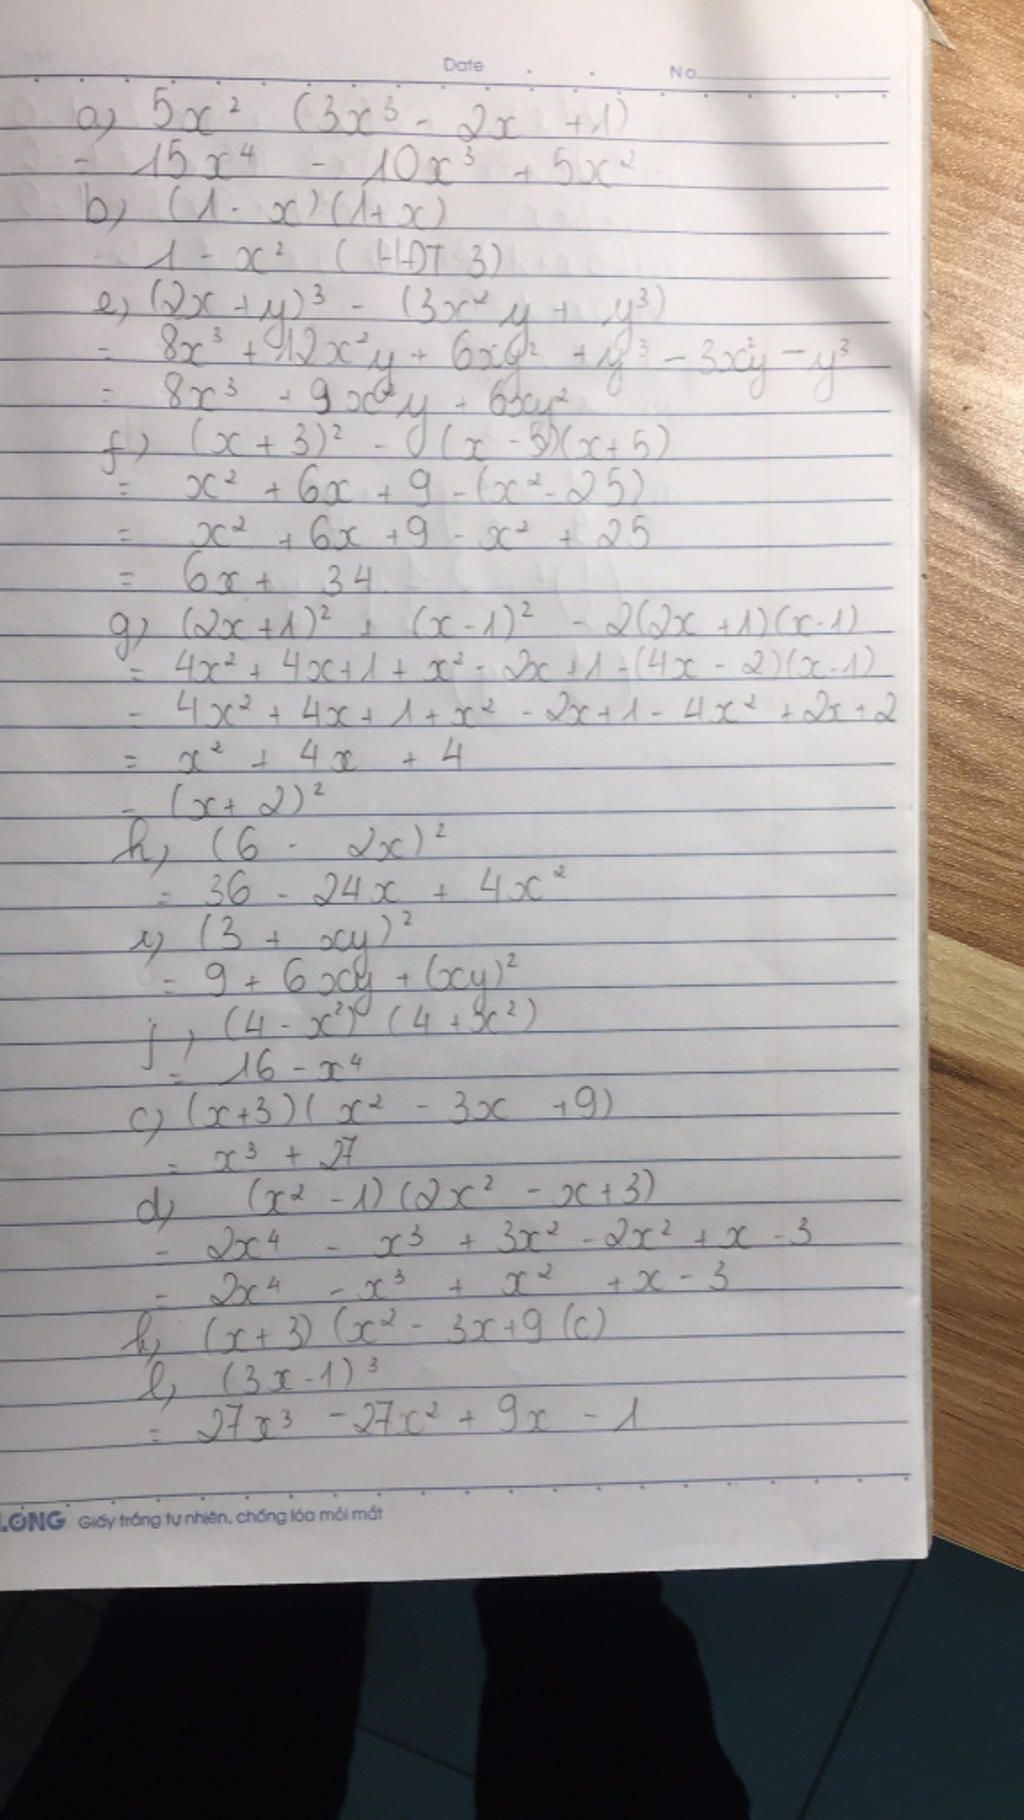 Date No
a) 5x² (3x³ - 2x + 1)
= 15x⁴ - 10x³ + 5x²
b) (1 - x)(1+x)
- 1 - x² (HĐT 3)
e) (2x + y)³ - (3x²y + y³)
= 8x³ + 12x²y + 6xy² + y³ - 3x²y - y³
= 8x³ + 9x²y + 6xy²
f) (x + 3)² - (x - 5)(x+5)
= x² + 6x + 9 - (x² - 25)
= x² + 6x + 9 - x² + 25
= 6x + 34
g) (2x+1)² + (x-1)² - 2(2x+1)(x-1)
= 4x² + 4x+1 + x² - 2x+1 - (4x - 2)(x-1)
= 4x² + 4x + 1 + x² - 2x+1 - 4x² + 2x + 2
= x² + 4x + 4
= (x+2)²
h) (6 - 2x)²
= 36 - 24x + 4x²
i) (3 + xy)²
= 9 + 6xy + (xy)²
j) (4 - x²) (4 + x²)
= 16 - x⁴
c) (x+3)(x² - 3x + 9)
= x³ + 27
d) (x² - 1)(2x² - x+3)
= 2x⁴ - x³ + 3x² - 2x² + x - 3
= 2x⁴ - x³ + x² + x - 3
k) (x+3) (x² - 3x+9 (c)
l) (3x-1)³
= 27x³ - 27x² + 9x - 1
LONG Giấy trắng tự nhiên, chống lóa mỏi mắt